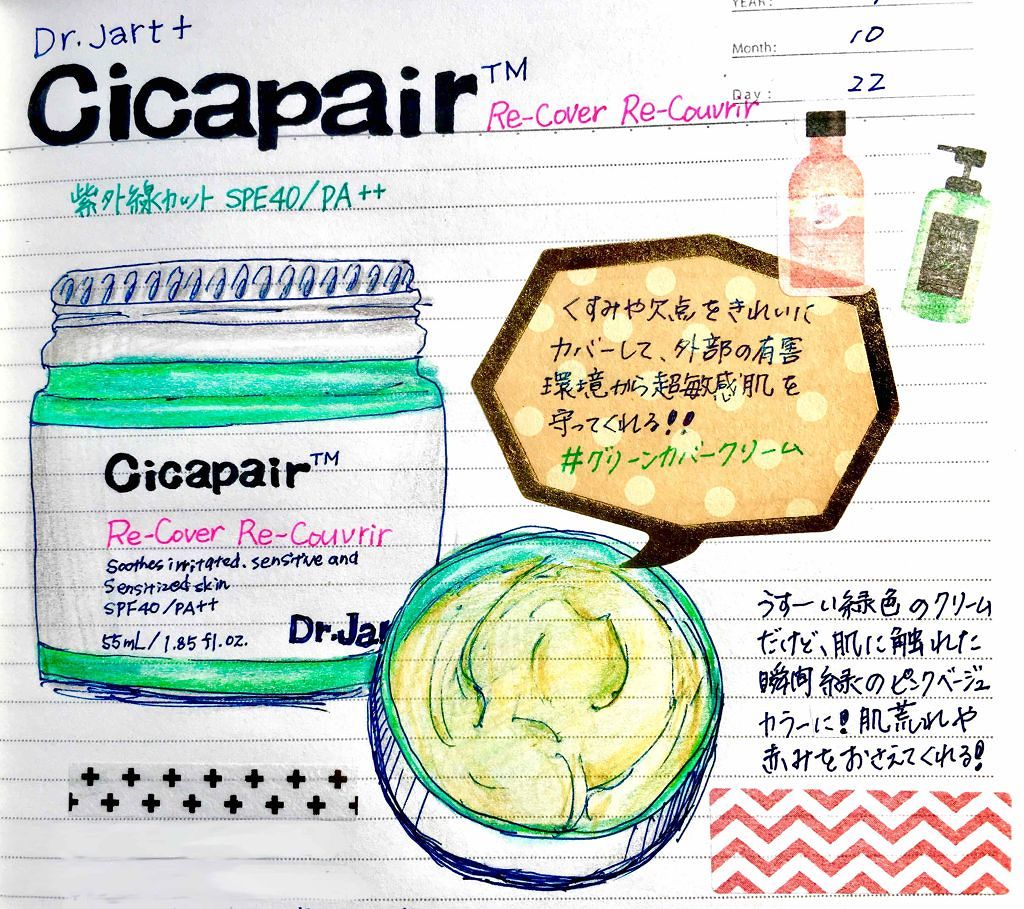 Dr.Jart+
Cicapair™
Re-Cover Re-Couvrir
YEAR:
Month: 10
Day: 22
紫外線カット SPE40/PA++
くすみや欠点をきれいに
カバーして、外部の有害
環境から超敏感肌を
守ってくれる!!
#グリーンカバークリーム
Cicapair™
Re-Cover Re-Couvrir
Soothes irritated. sensitive and
Sensitized skin
SPF40/PA++
55mL/1.85 fl.oz.
Dr.Jar
うすーい緑色のクリーム
だけど、肌に触れた
瞬間緑のピンクベージュ
カラーに!肌荒れや
赤みをおさえてくれる!